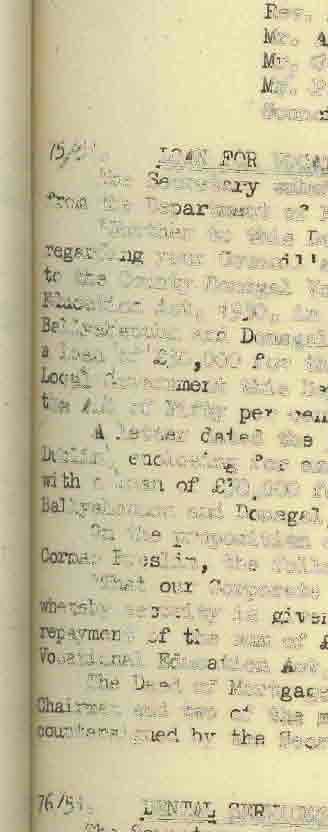 Rev.
Mr. A
Mr.
Mr. P
Counc
LOAN FOR VOCAT
The Secretary submi
from the Department of
"Further to this
regarding your Council's
to the County Donegal Vo
Education Act, 1930, in
Ballyshannon and Donegal
a loan of £30,000 for
Local Government this De
the Act of Fifty per cen
A letter dated the
Dublin, enclosing for
with a loan of £30,000 f
Ballyshannon and Donegal
On the proposition
Cormac Breslin, the foll
"That our Corporate
whereby security is given
repayment of the sum of £
Vocational Education Act
The Deed of Mortgage
Chairman and two of the m
countersigned by the Secr
76/51. DENTAL SERVICES
The